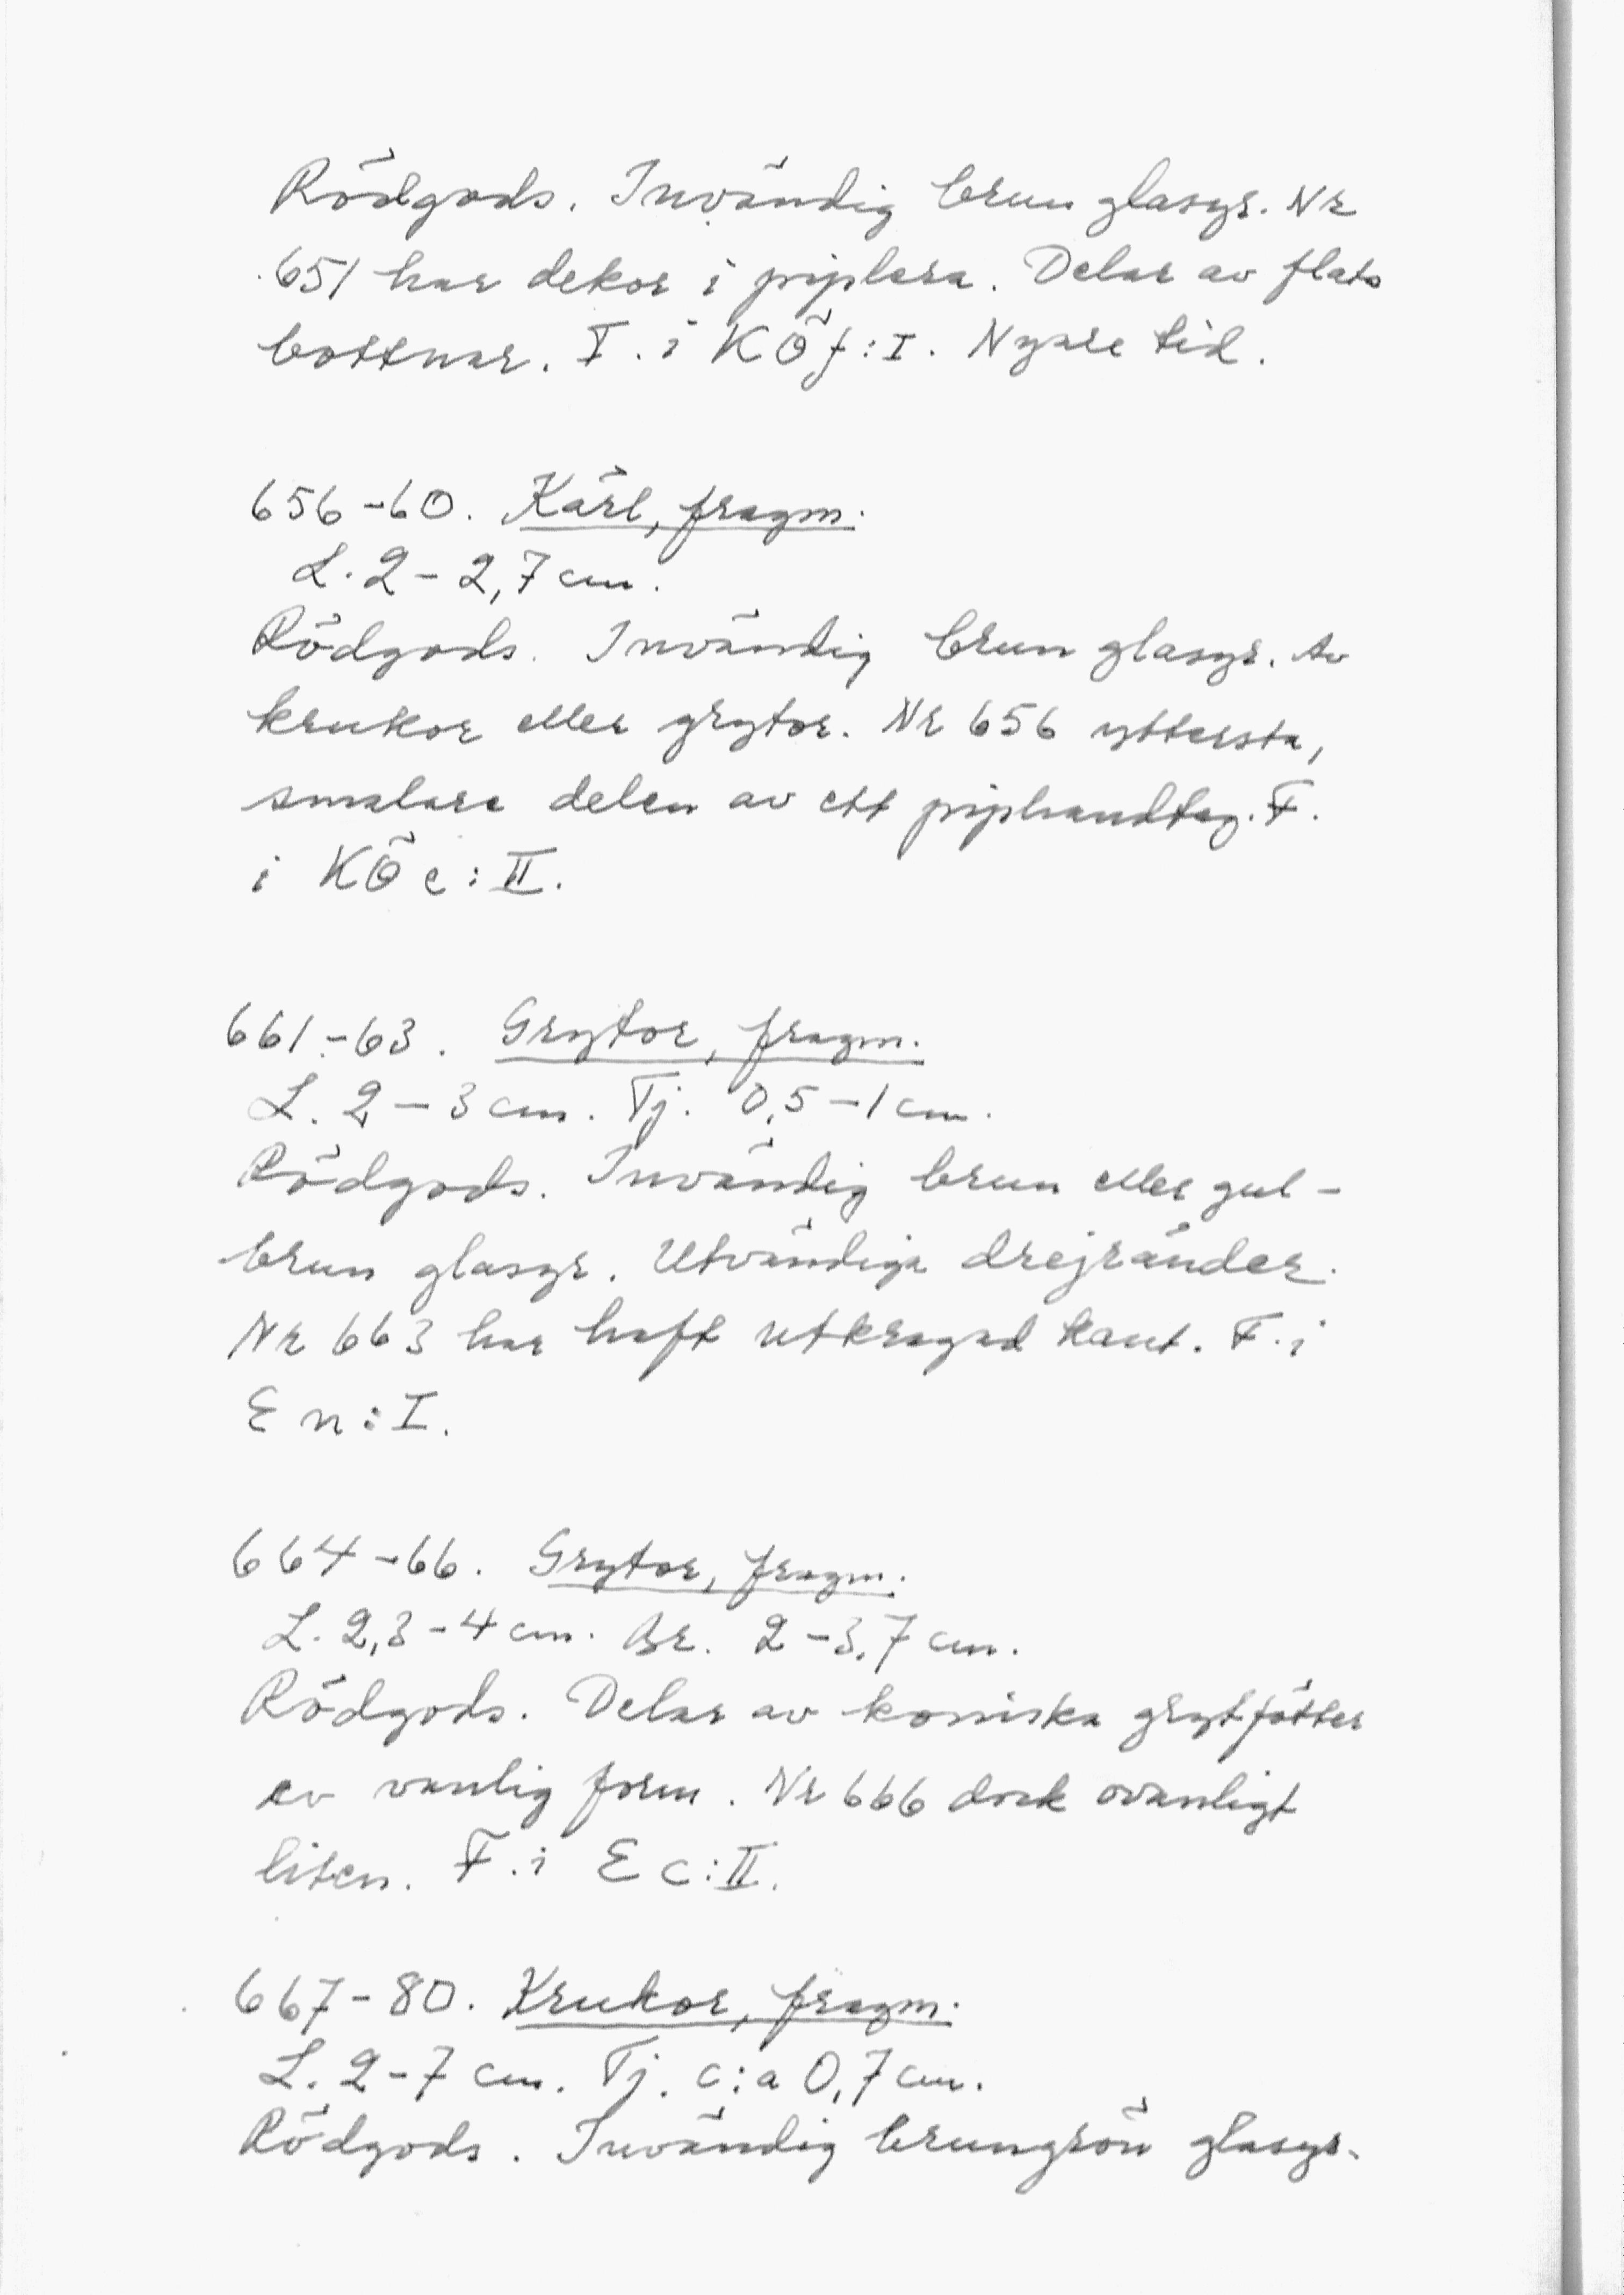 Rödgods. Invändig brun glasyr. Nr
651 har dekor i piplera. Delar av flata
bottnar. F. i KÖf:I. Nyare tid.
656-60. Kärl, fragm.
L. 2-2,7 cm.
Rödgods. Invändig brun glasyr. Av
krukor eller grytor. Nr 656 yttersta,
smalare delen av ett piphandtag. F.
i KÖ c:II.
661-63. Grytor, fragm.
L. 2-3 cm. Tj. 0,5-1 cm.
Rödgods. Invändig brun eller gul-
brun glasyr. Utvändiga drejränder.
Nr 663 har haft utkragad kant. F. i
E n:I.
664-66. Grytor, fragm.
L. 2,3-4 cm. Br. 2-3,7 cm.
Rödgods. Delar av koniska grytfötter
av vanlig form. Nr 666 dock ovanligt
liten. F. i E c:II.
667-80. Krukor, fragm.
L. 2-7 cm. Tj. c:a 0,7 cm.
Rödgods. Invändig brungrön glasyr.